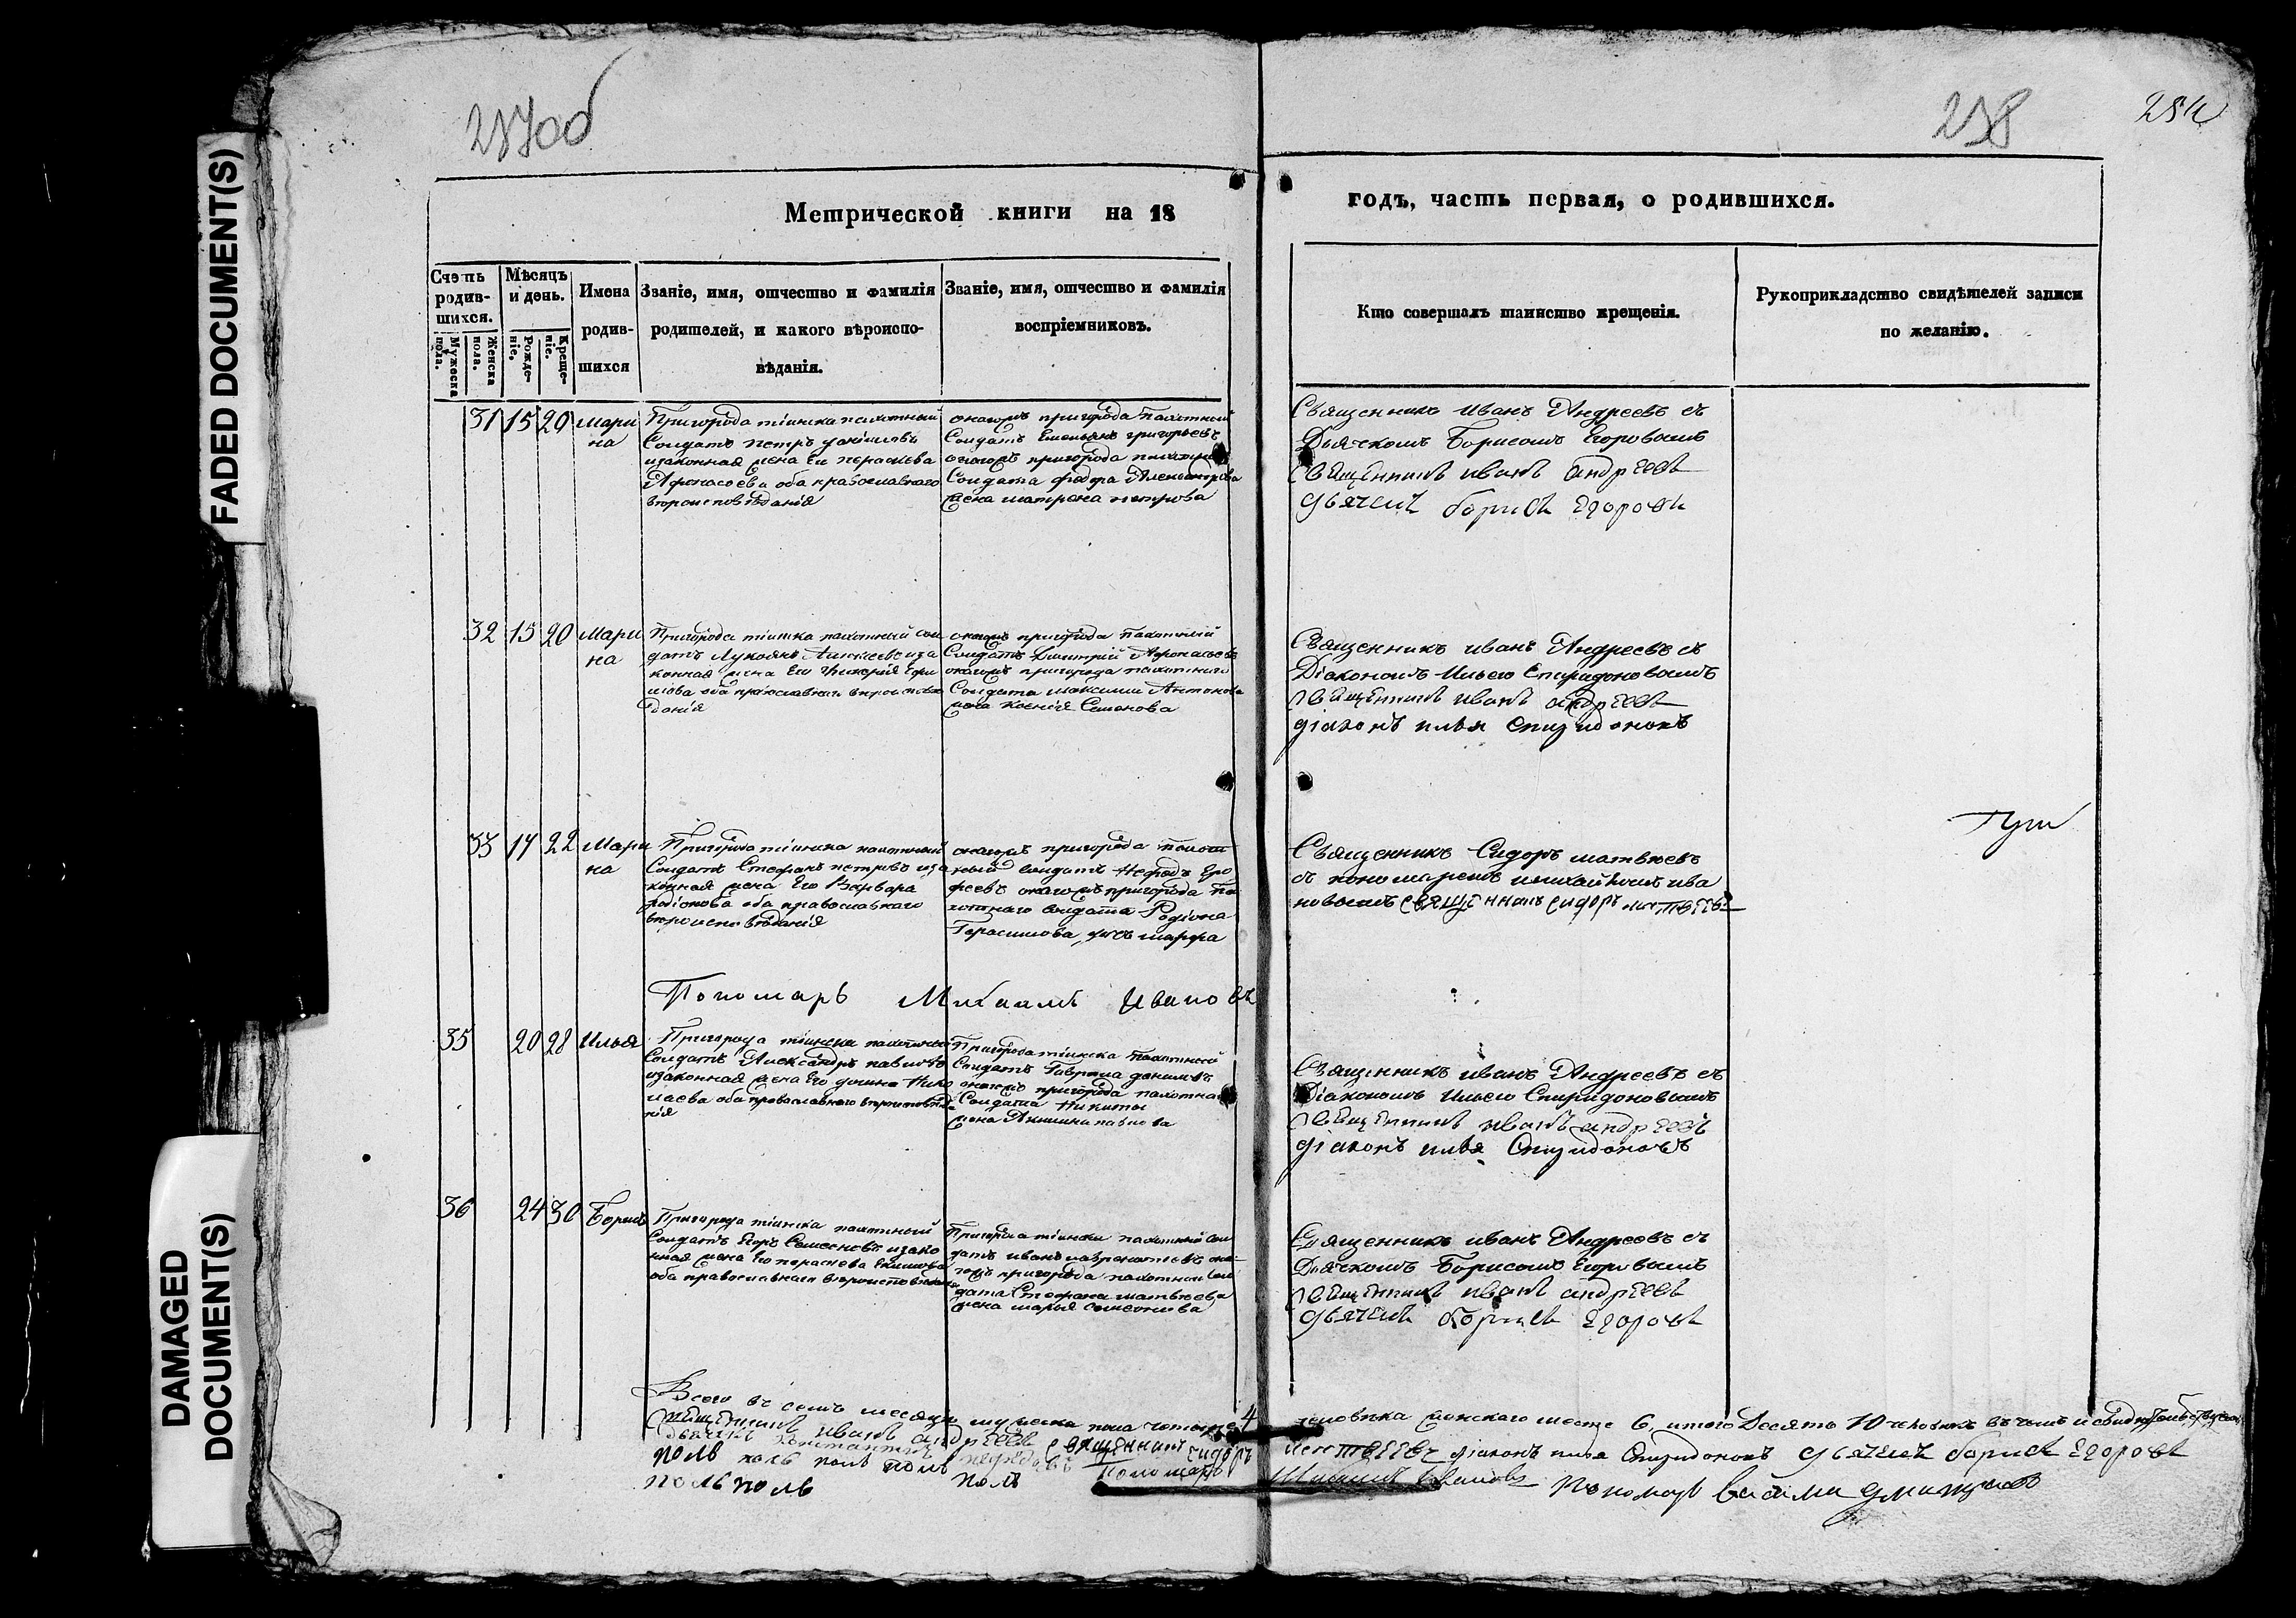 FADED DOCUMENT(S)
DAMAGED
DOCUMENT(S)
257об
258
254
Метрической книги на 18
годъ, часть первая, о родившихся.
Счетъ родив-шихся.
Мужеска пола.
Женска пола.
Мѣсяцъ и день.
Рожде-ніе.
Креще-ніе.
Имена родив-шихся
Званіе, имя, отчество и фамилія
родителей, и какого вѣроиспо-
вѣданія.
Званіе, имя, отчество и фамилія
воспріемниковъ.
Кто совершалъ таинство крещенія.
Рукоприкладство свидѣтелей записи
по желанію.
31 15 20 Мари
на
Пригорода тіинска пахотный
Солдатъ петръ
изаконная жена Ею параскева
Афонасоева оба православнаго
вѣроисповѣданія
онагожъ пригорода пахотный
Солдатъ Емельянъ григорьевъ
онагожъ пригорода
Солдата федора Александрова
жена матрена петрова
Священникъ Иванъ Андреевъ съ
Дьячкомъ Борисомъ Егоровымъ
священникъ иванъ андреевъ
дьячекъ борисъ егоровъ
32 15 20 Мари
на
Пригорода тіинска пахотный сол
датъ Лукоянъ иза
конная жена Его
оба православнаго вѣроисповѣ
данія
онагожъ пригорода пахотный
Солдатъ Дмитрий Афонасьевъ
онагожъ пригорода пахотнаго
Солдата максима Антонова
жена ксенія Семонова
Священникъ иванъ Андреевъ съ
Діакономъ Ильею Спиридоновымъ
священникъ иванъ андреевъ
діаконъ илья Спиридоновъ
33 17 22 Мари
на
Пригорода тіинска пахотный
Солдатъ Стефанъ петровъ иза
конная жена Его Варвара
родіонова оба православнаго
вѣроисповѣданія
онагожъ пригорода пахот
ный солдатъ Нефодъ Еро
феевъ онагожъ пригорода па
хотнаго солдата Родіона
Герасимова дочь марфа
Священникъ Сидоръ матвѣевъ
съ пономаремъ михайломъ ива
новымъ священникъ сидоръ матвеевъ
Пономарь Михаилъ Ивановъ
35 20 28 Илья
Пригорода тіинска пахотный
Солдатъ Александръ павловъ
изаконная жена Его домна Нико
лаева оба православнаго вѣроисповѣда
нія
Пригорода тіинска пахотный
Солдатъ Гаврила
онагожъ пригорода пахотна
Солдата Никиты
жена Акилина павлова
Священникъ иванъ Андреевъ съ
Діакономъ Ильею Спиридоновымъ
священникъ иванъ андреевъ
діаконъ илья Спиридоновъ
36 24 30 Борисъ
Пригорода тіинска пахотный
Солдатъ Егоръ Семеновъ изако
нная жена Его параскева
оба православнаго вѣроисповѣдания
Пригорода тіинска пахотный сол
датъ иванъ она
гожъ пригорода пахотнаго сол
дата Стефана матвѣева
жена марья семенова
Священникъ иванъ Андреевъ съ
Дьячкомъ Борисомъ Егоровымъ
священникъ иванъ андреевъ
дьячекъ борисъ егоровъ
Всего въ семъ месяце мужеска пола четыре 4 человѣка женскаго шесть 6, итого Десять 10 человекъ въ чемъ и свидетельствуемъ
священникъ иванъ андреевъ священникъ сидоръ матвеевъ діаконъ илья Спиридоновъ дьячекъ борисъ егоровъ
Пономарь Михаилъ Ивановъ Пономарь